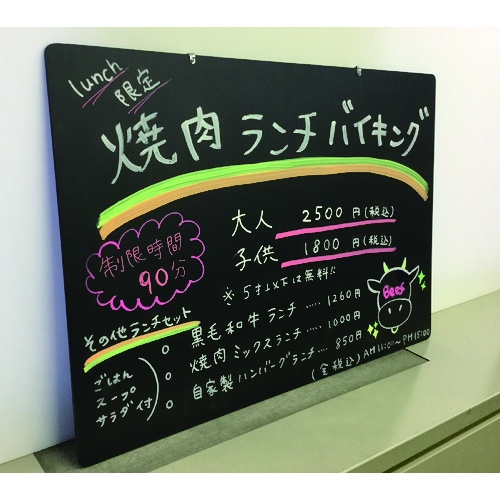 lunch
限定
焼肉ランチバイキング
大人 2500円(税込)
子供 1800円(税込)
※5才以下は無料!!
制限時間
90分
Beef
その他ランチセット
ごはん
スープ
サラダ付
○黒毛和牛ランチ.....1260円
○焼肉ミックスランチ....1000円
○自家製ハンバーグランチ...850円
(全税込)
AM11:00〜PM15:00